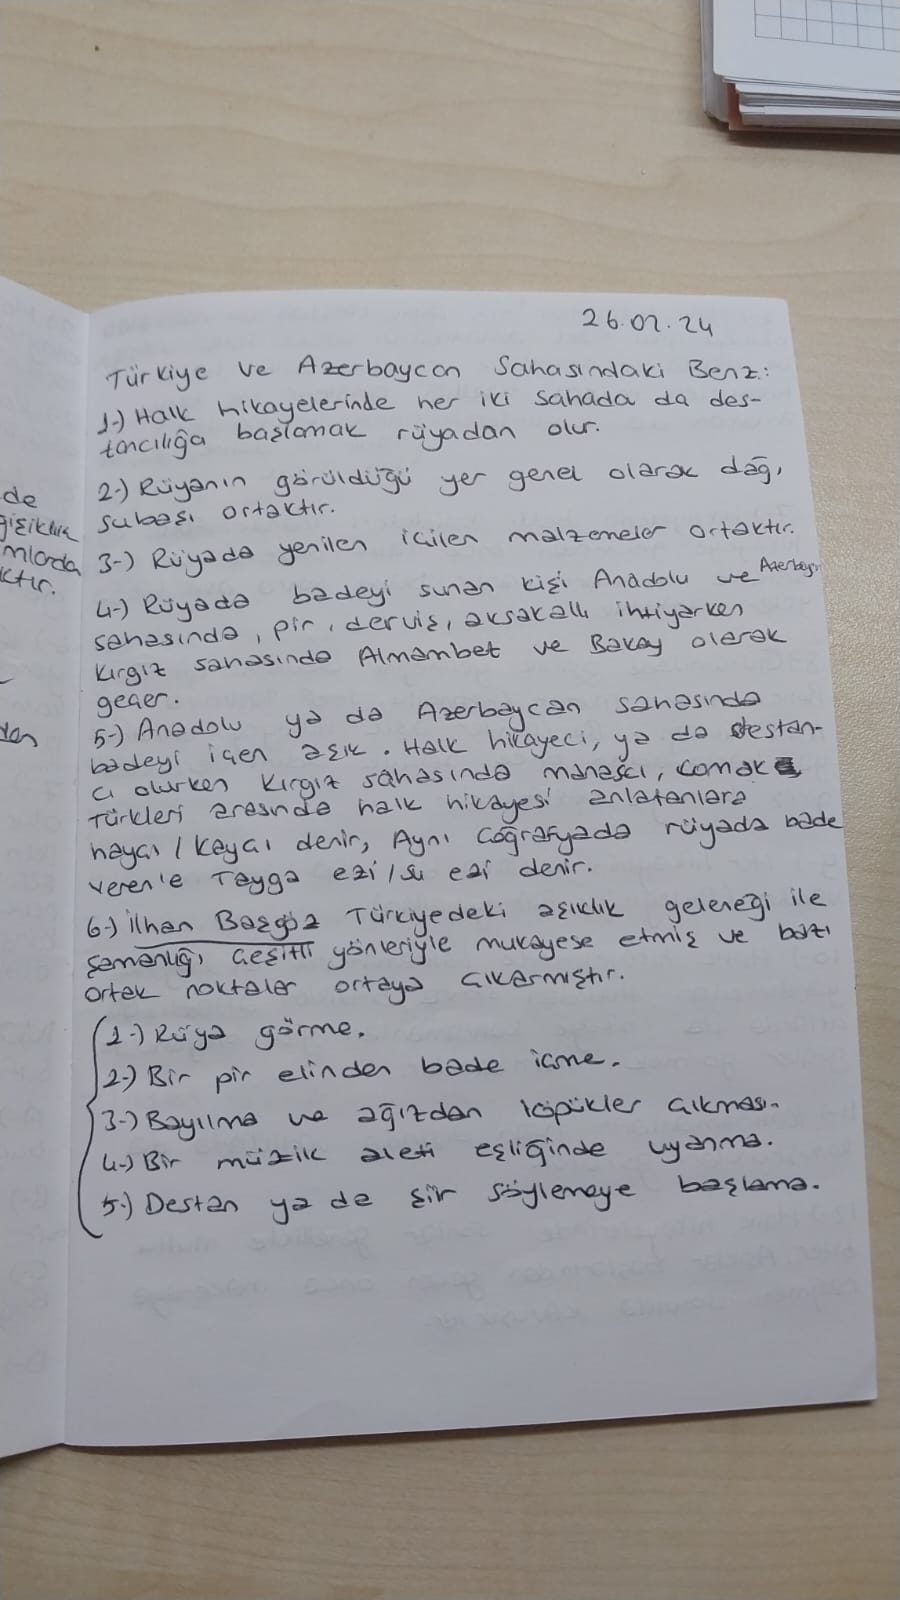 26.02.24
Türkiye ve Azerbaycan Sahasındaki Benz.:
1-) Halk hikayelerinde her iki sahada da des-
tancılığa başlamak rüyadan olur.
2-) Rüyanın görüldüğü yer genel olarak dağ,
subaşı ortaktır.
3-) Rüyada yenilen içilen malzemeler ortaktır.
4-) Rüyada badeyi sunan kişi Anadolu ve Azerbaycan
sahasında, pir, derviş, aksakallı ihtiyarken
Kırgız sahasında Almambet ve Bakay olarak
geçer.
5-) Anadolu ya da Azerbaycan sahasında
badeyi içen aşık. Halk hikayeci, ya da destan-
cı olurken Kırgız sahasında manasçı,
Türkleri arasında halk hikayesi anlatanlara
haycı / kaycı denir, Aynı coğrafyada rüyada bade
veren'e Tayga ezi / su ezi denir.
6-) İlhan Başgöz Türkiyedeki aşıklık geleneği ile
şamanlığı çeşitli yönleriyle mukayese etmiş ve bazı
ortak noktalar ortaya çıkarmıştır.
1-) Rüya görme.
2-) Bir pir elinden bade içme.
3-) Bayılma ve ağızdan köpükler çıkması.
4-) Bir müzik aleti eşliğinde uyanma.
5-) Destan ya da şiir söylemeye başlama.
de
ktır.